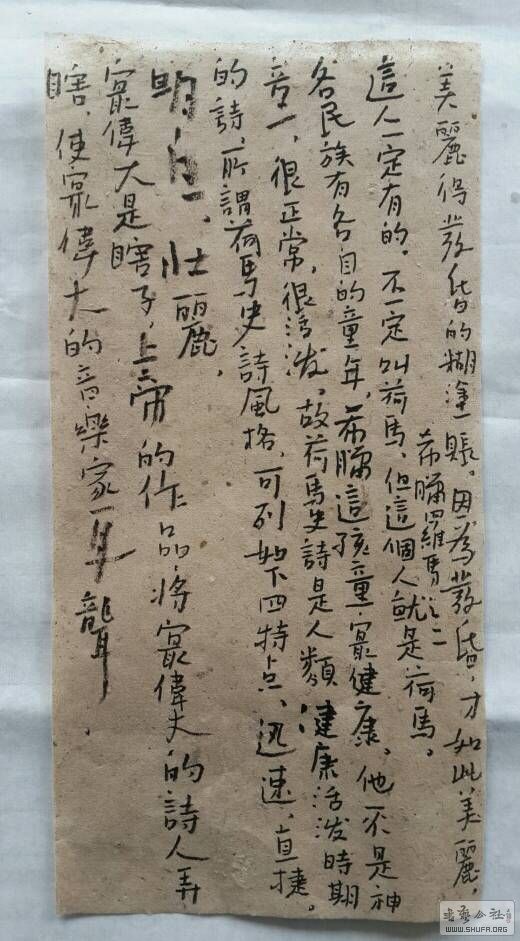 美麗得發昏的糊塗賬。因為發昏,才如此美麗,
希臘羅馬之二
這人一定有的。不一定叫荷馬,但這個人就是荷馬。
各民族有各自的童年,希臘這孩童最健康,他不是神
童,很正常,很活潑。故荷馬史詩是人類健康活潑時期
的詩,所謂荷馬史詩風格,可列如下四特点、迅速、直捷。
明白、壯麗。
最偉大是瞎子,上帝的作品將最偉大的詩人弄
瞎、使最偉大的音樂家耳聾.
书法公社
WWW.SHUFA.ORG